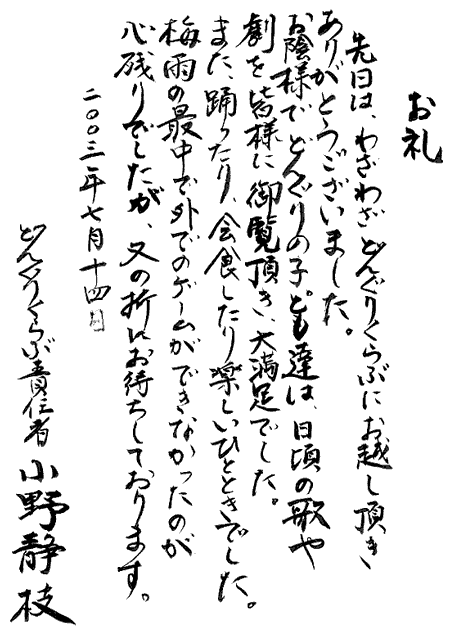 お礼
先日は、わざわざどんぐりくらぶにお越し頂き
ありがとうございました。
お陰様でどんぐりの子ども達は、日頃の歌や
劇を皆様に御覧頂き、大満足でした。
また、踊ったり、会食したり楽しいひとときでした。
梅雨の最中で外でのゲームができなかったのが
心残りでしたが、又の折にお待ちしております。
二〇〇三年七月十四日
どんぐりくらぶ責任者 小野静枝